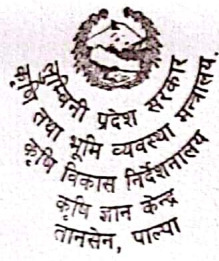 लुम्बिनी प्रदेश सरकार
कृषि तथा भूमि व्यवस्था मन्त्रालय.
कृषि विकास निर्देशनालय
कृषि ज्ञान केन्द्र
तानसेन, पाल्पा